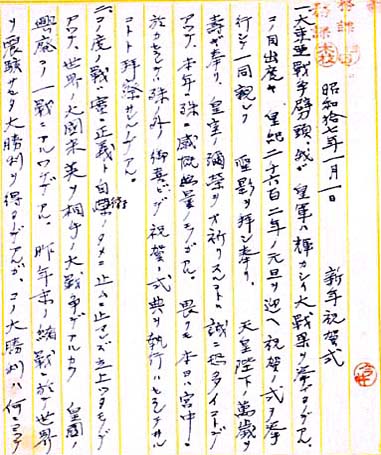 昭和拾七年一月一日　新年祝賀式
一、大東亜戦争劈頭、我ガ皇軍ハ輝カシイ大戦果ヲ挙ゲタノデアル。
コノ目出度キ皇紀二千六百二年ノ元旦ヲ迎ヘ祝賀ノ式ヲ挙
行シテ一同親シク聖影ヲ拝シ奉リ、天皇陛下ノ萬歳ヲ
壽ギ奉リ、皇室ノ彌榮ヲオ祈リスルコトハ誠ニ
アツテ、本年ハ殊ニ感慨無量ノモノガアル。畏クモ本日ハ宮中ニ
於カセラレテハ殊ノ外御喜ビデ祝賀ノ式典ヲ執行ハセラレタ
コトト拝察サレルノデアル。
二、コノ度ノ戦ハ実ニ正義ト自衛ノタメニ止ムニ止マレズ立上ツタモノデ
アツテ、世界ノ大国米英ヲ相手ノ大戦争デアルカラ皇國ノ
興廃コノ一戦ニアルワケデアル。昨年末ノ緒戦ニ於テ世界
ヲ震駭サセタ大勝利ヲ得タノデアルガ、コノ大勝利ハ何ニヨツテ